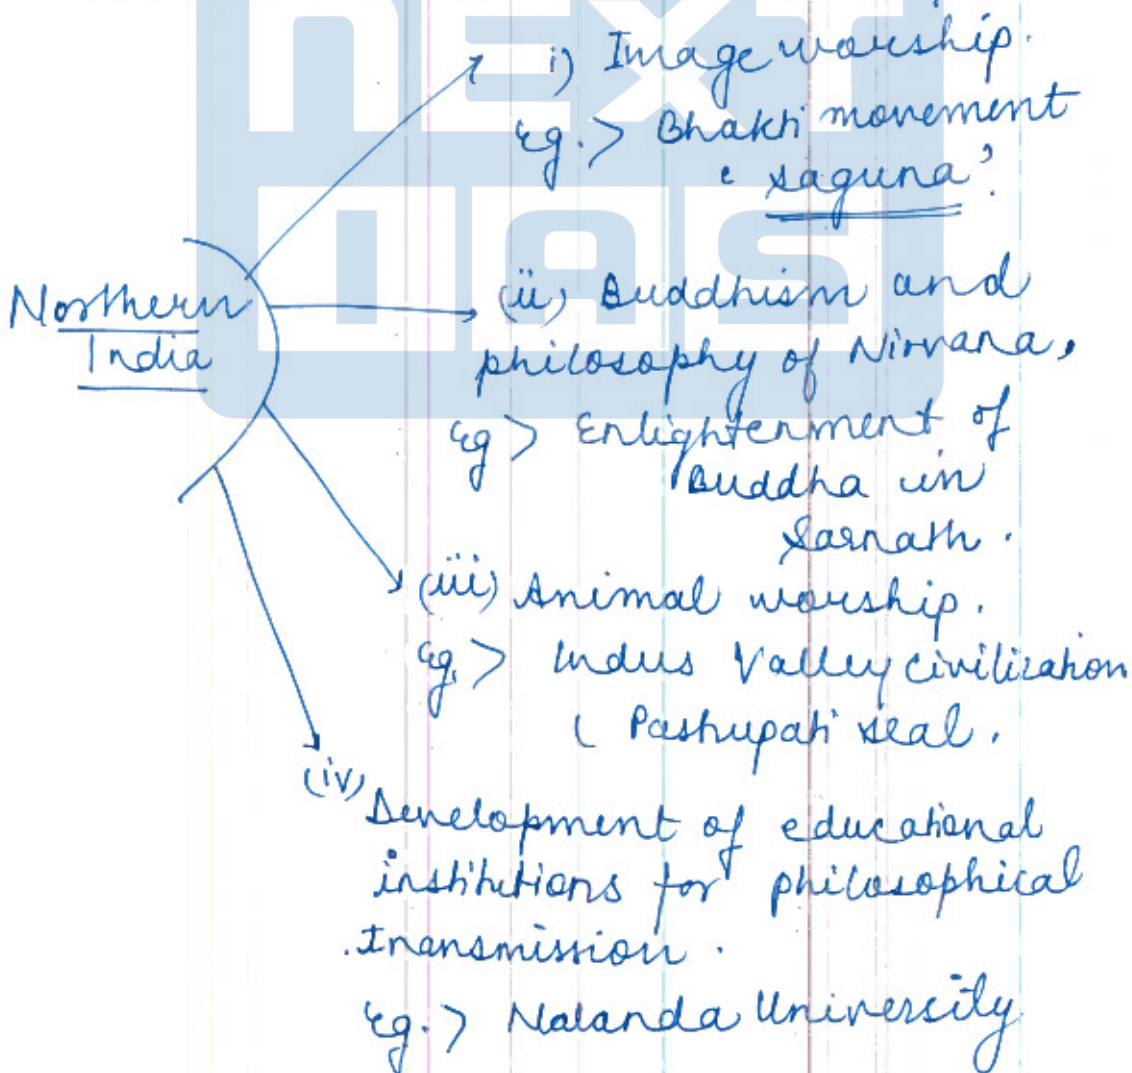 NEXT
IAS
i) Image worship.
Eg. > Bhakti movement
'saguna'.
Northern
India
(ii) Buddhism and
philosophy of Nirvana,
Eg > Enlightenment of
Buddha in
Sarnath.
(iii) Animal worship.
Eg. > Indus Valley civilization
( Pashupati seal.
(iv) Development of educational
institutions for philosophical
transmission.
Eg. > Nalanda University